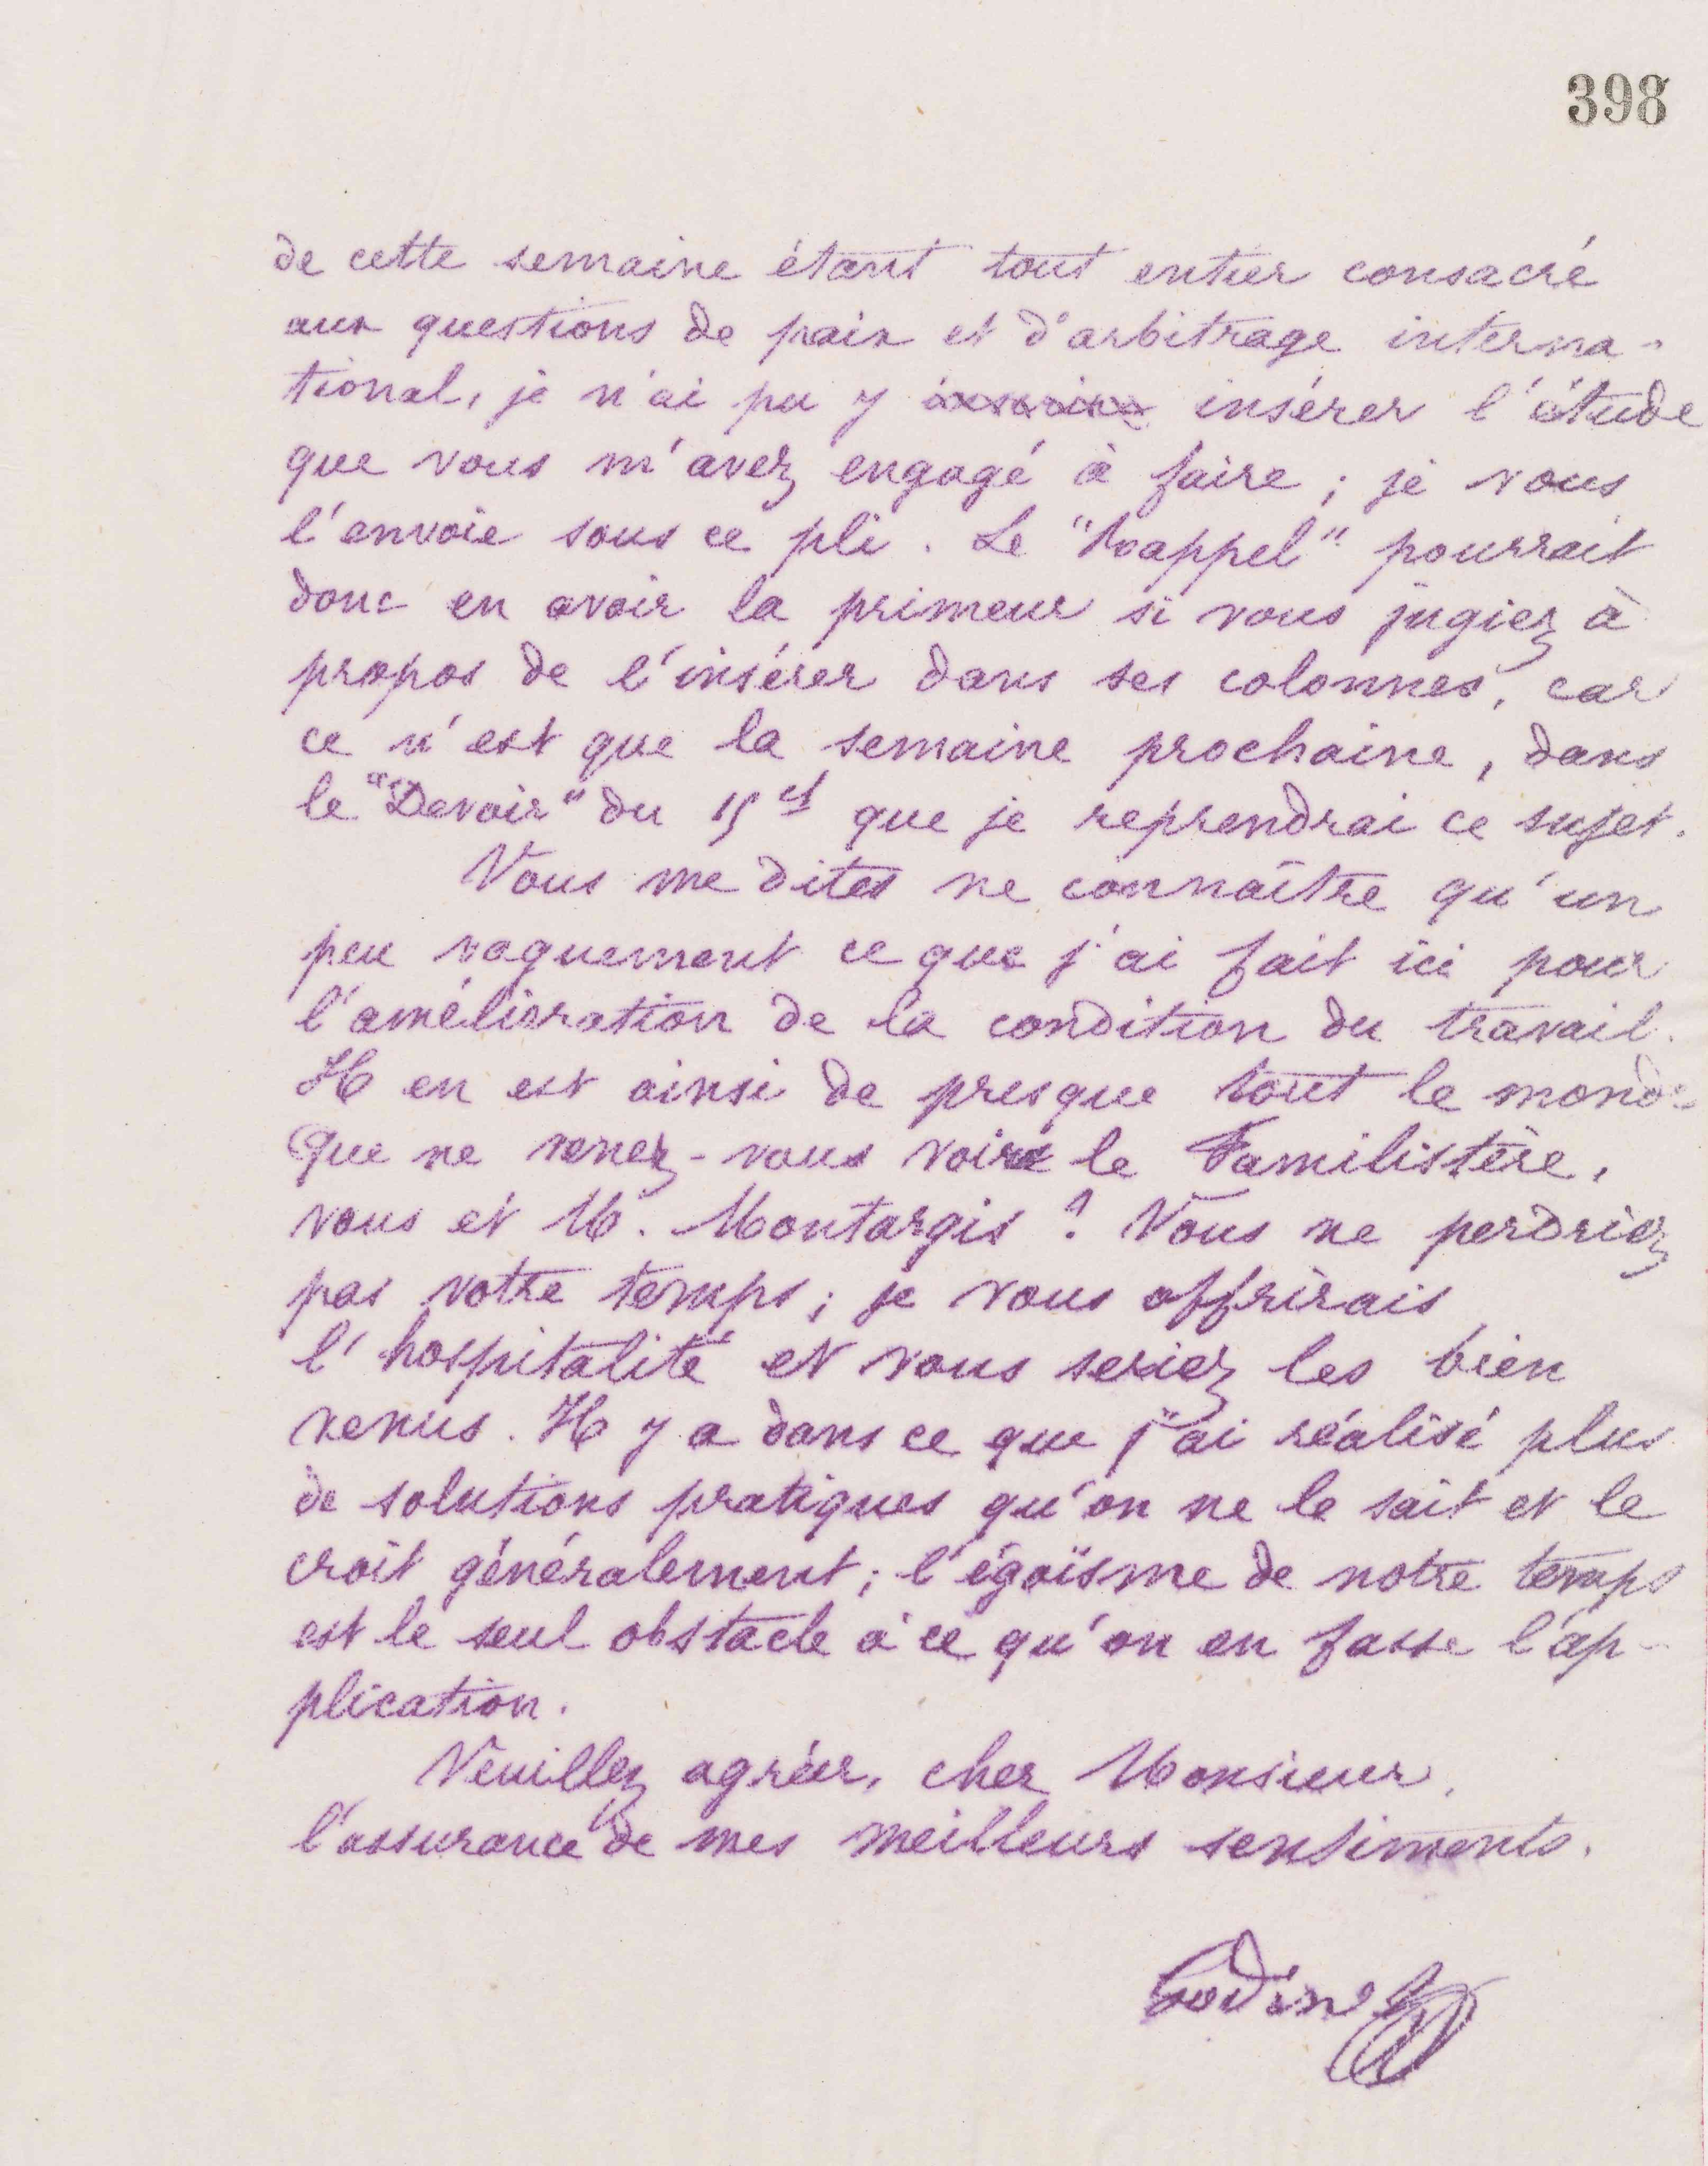 398
de cette semaine étant tout entier consacré
aux questions de paix et d'arbitrage interna-
tional, je n'ai pu y insérer l'étude
que vous m'avez engagé à faire ; je vous
l'envoie sous ce pli. Le "Rappel" pourrait
donc en avoir la primeur si vous jugiez à
propos de l'insérer dans ses colonnes, car
ce n'est que la semaine prochaine, dans
le "Devoir" du 15 ct que je reprendrai ce sujet.
Vous me dites ne connaître qu'un
peu vaguement ce que j'ai fait ici pour
l'amélioration de la condition du travail.
Il en est ainsi de presque tout le monde
Que ne venez-vous voir le Familistère,
vous et M. Montargis ? Vous ne perdriez
pas votre temps ; je vous offrirais
l'hospitalité et vous seriez les bien
venus. Il y a dans ce que j'ai réalisé plus
de solutions pratiques qu'on ne le sait et le
croit généralement ; l'égoïsme de notre temps
est le seul obstacle à ce qu'on en fasse l'ap-
plication.
Veuillez agréer, cher Monsieur,
l'assurance de mes meilleurs sentiments.
Godin